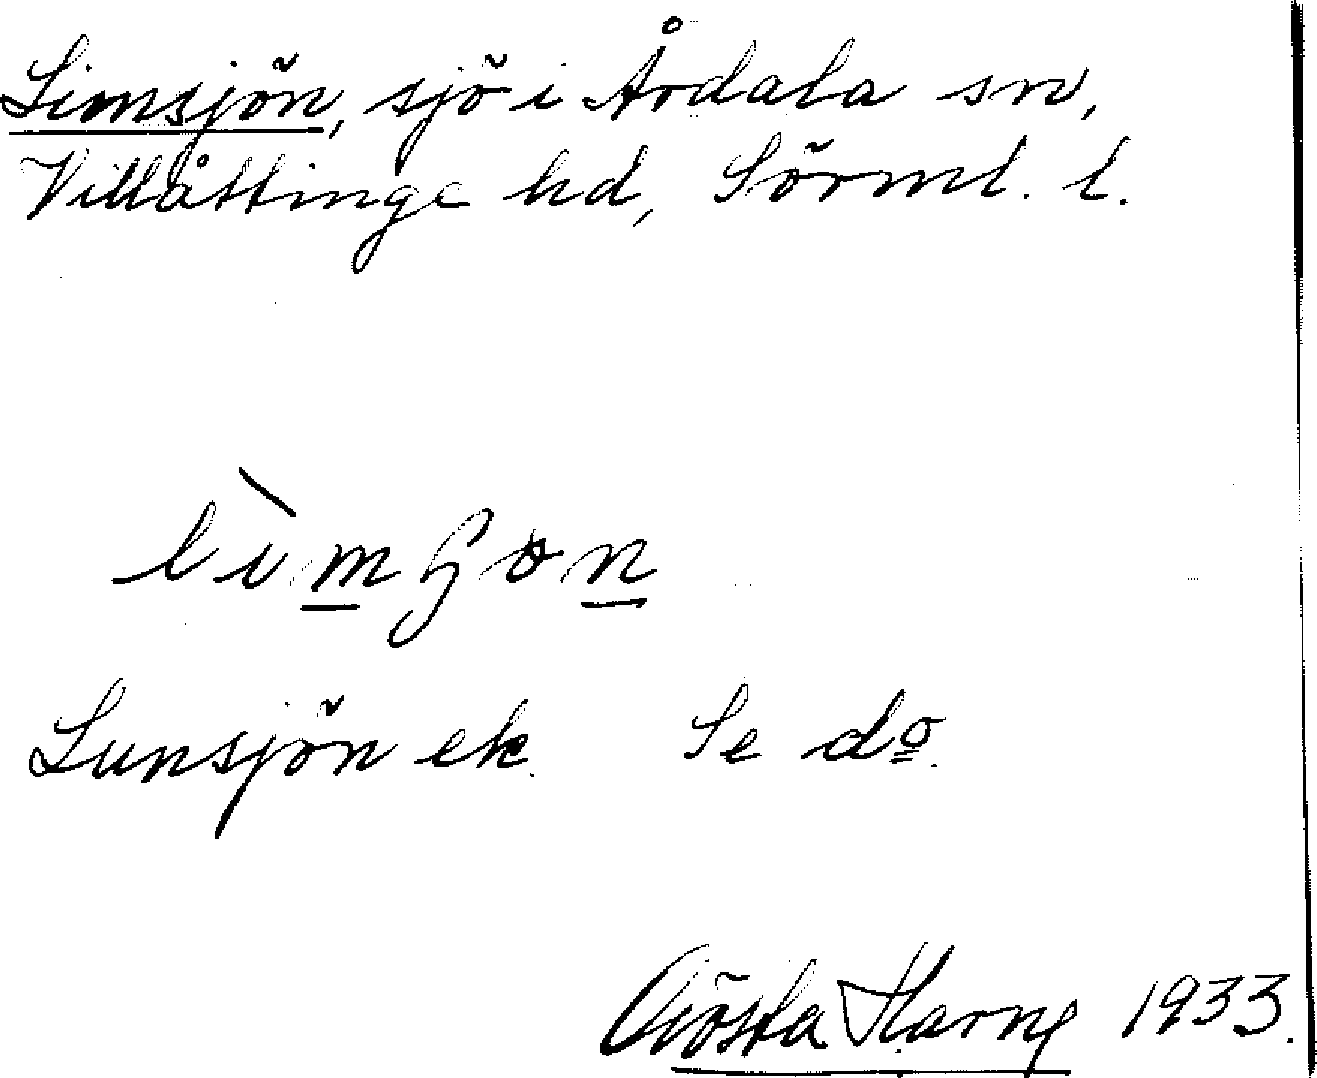 Limsjön, sjö i Årdala sn,
Villåttinge hd, Sörml. l.
lìmʃon
Lunsjön ek. Se do.
Gösta Harne 1933.